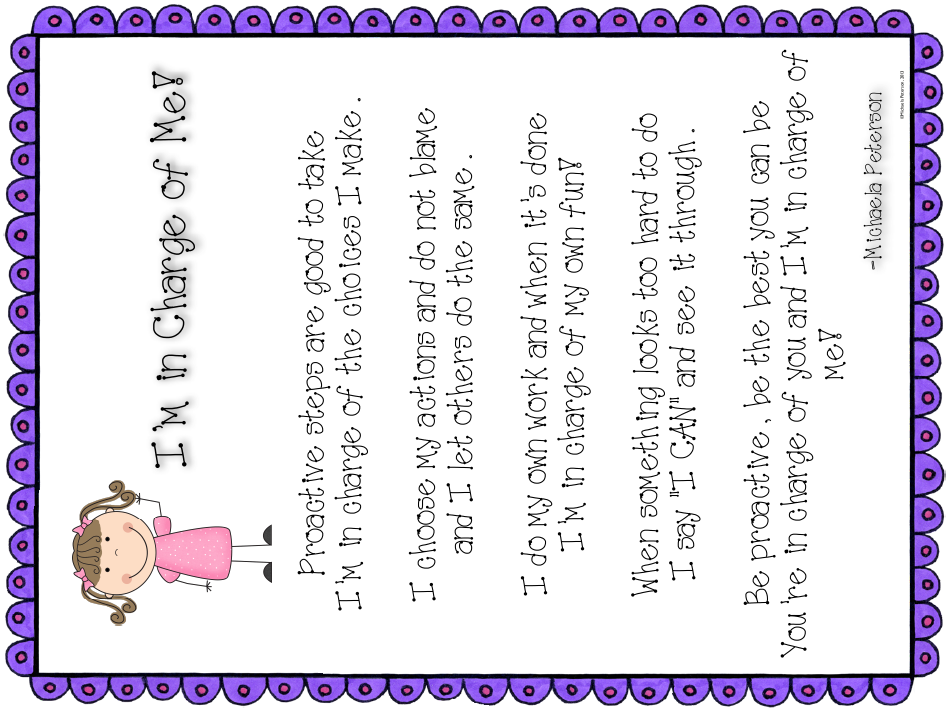 I'm in Charge of Me!
Proactive steps are good to take
I'm in charge of the choices I make.
I choose my actions and do not blame
and I let others do the same.
I do my own work and when it's done
I'm in charge of my own fun!
When something looks too hard to do
I say "I CAN" and see it through.
Be proactive, be the best you can be
You're in charge of you and I'm in charge of
Me!
-Michaela Peterson
©Michaela Peterson, 2013